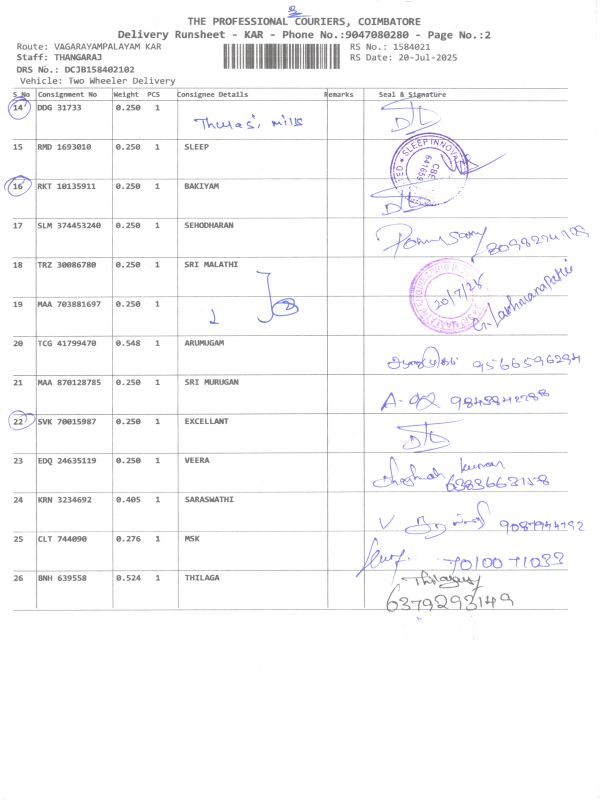 2
THE PROFESSIONAL COURIERS, COIMBATORE
Delivery Runsheet - KAR - Phone No.:9047080280 - Page No.:2
Route: VAGARAYAMPALAYAM KAR RS No.: 1584021
Staff: THANGARAJ RS Date: 20-Jul-2025
DRS No.: DCJB158402102
Vehicle: Two Wheeler Delivery
S No Consignment No Weight PCS Consignee Details Remarks Seal & Signature
14 DDG 31733 0.250 1
mills
15 RMD 1693010 0.250 1 SLEEP
SLEEP INNOVA
CBE
641659
16 RKT 10135911 0.250 1 BAKIYAM
17 SLM 374453240 0.250 1 SEHODHARAN
18 TRZ 30086780 0.250 1 SRI MALATHI
20/7/25
19 MAA 703881697 0.250 1
20 TCG 41799470 0.548 1 ARUMUGAM
9566596294
21 MAA 870128785 0.250 1 SRI MURUGAN
22 SVK 70015987 0.250 1 EXCELLANT
23 EDQ 24635119 0.250 1 VEERA
kumar
6383663158
24 KRN 3234692 0.405 1 SARASWATHI
V
25 CLT 744090 0.276 1 MSK
7010071033
26 BNH 639558 0.524 1 THILAGA
6379293149